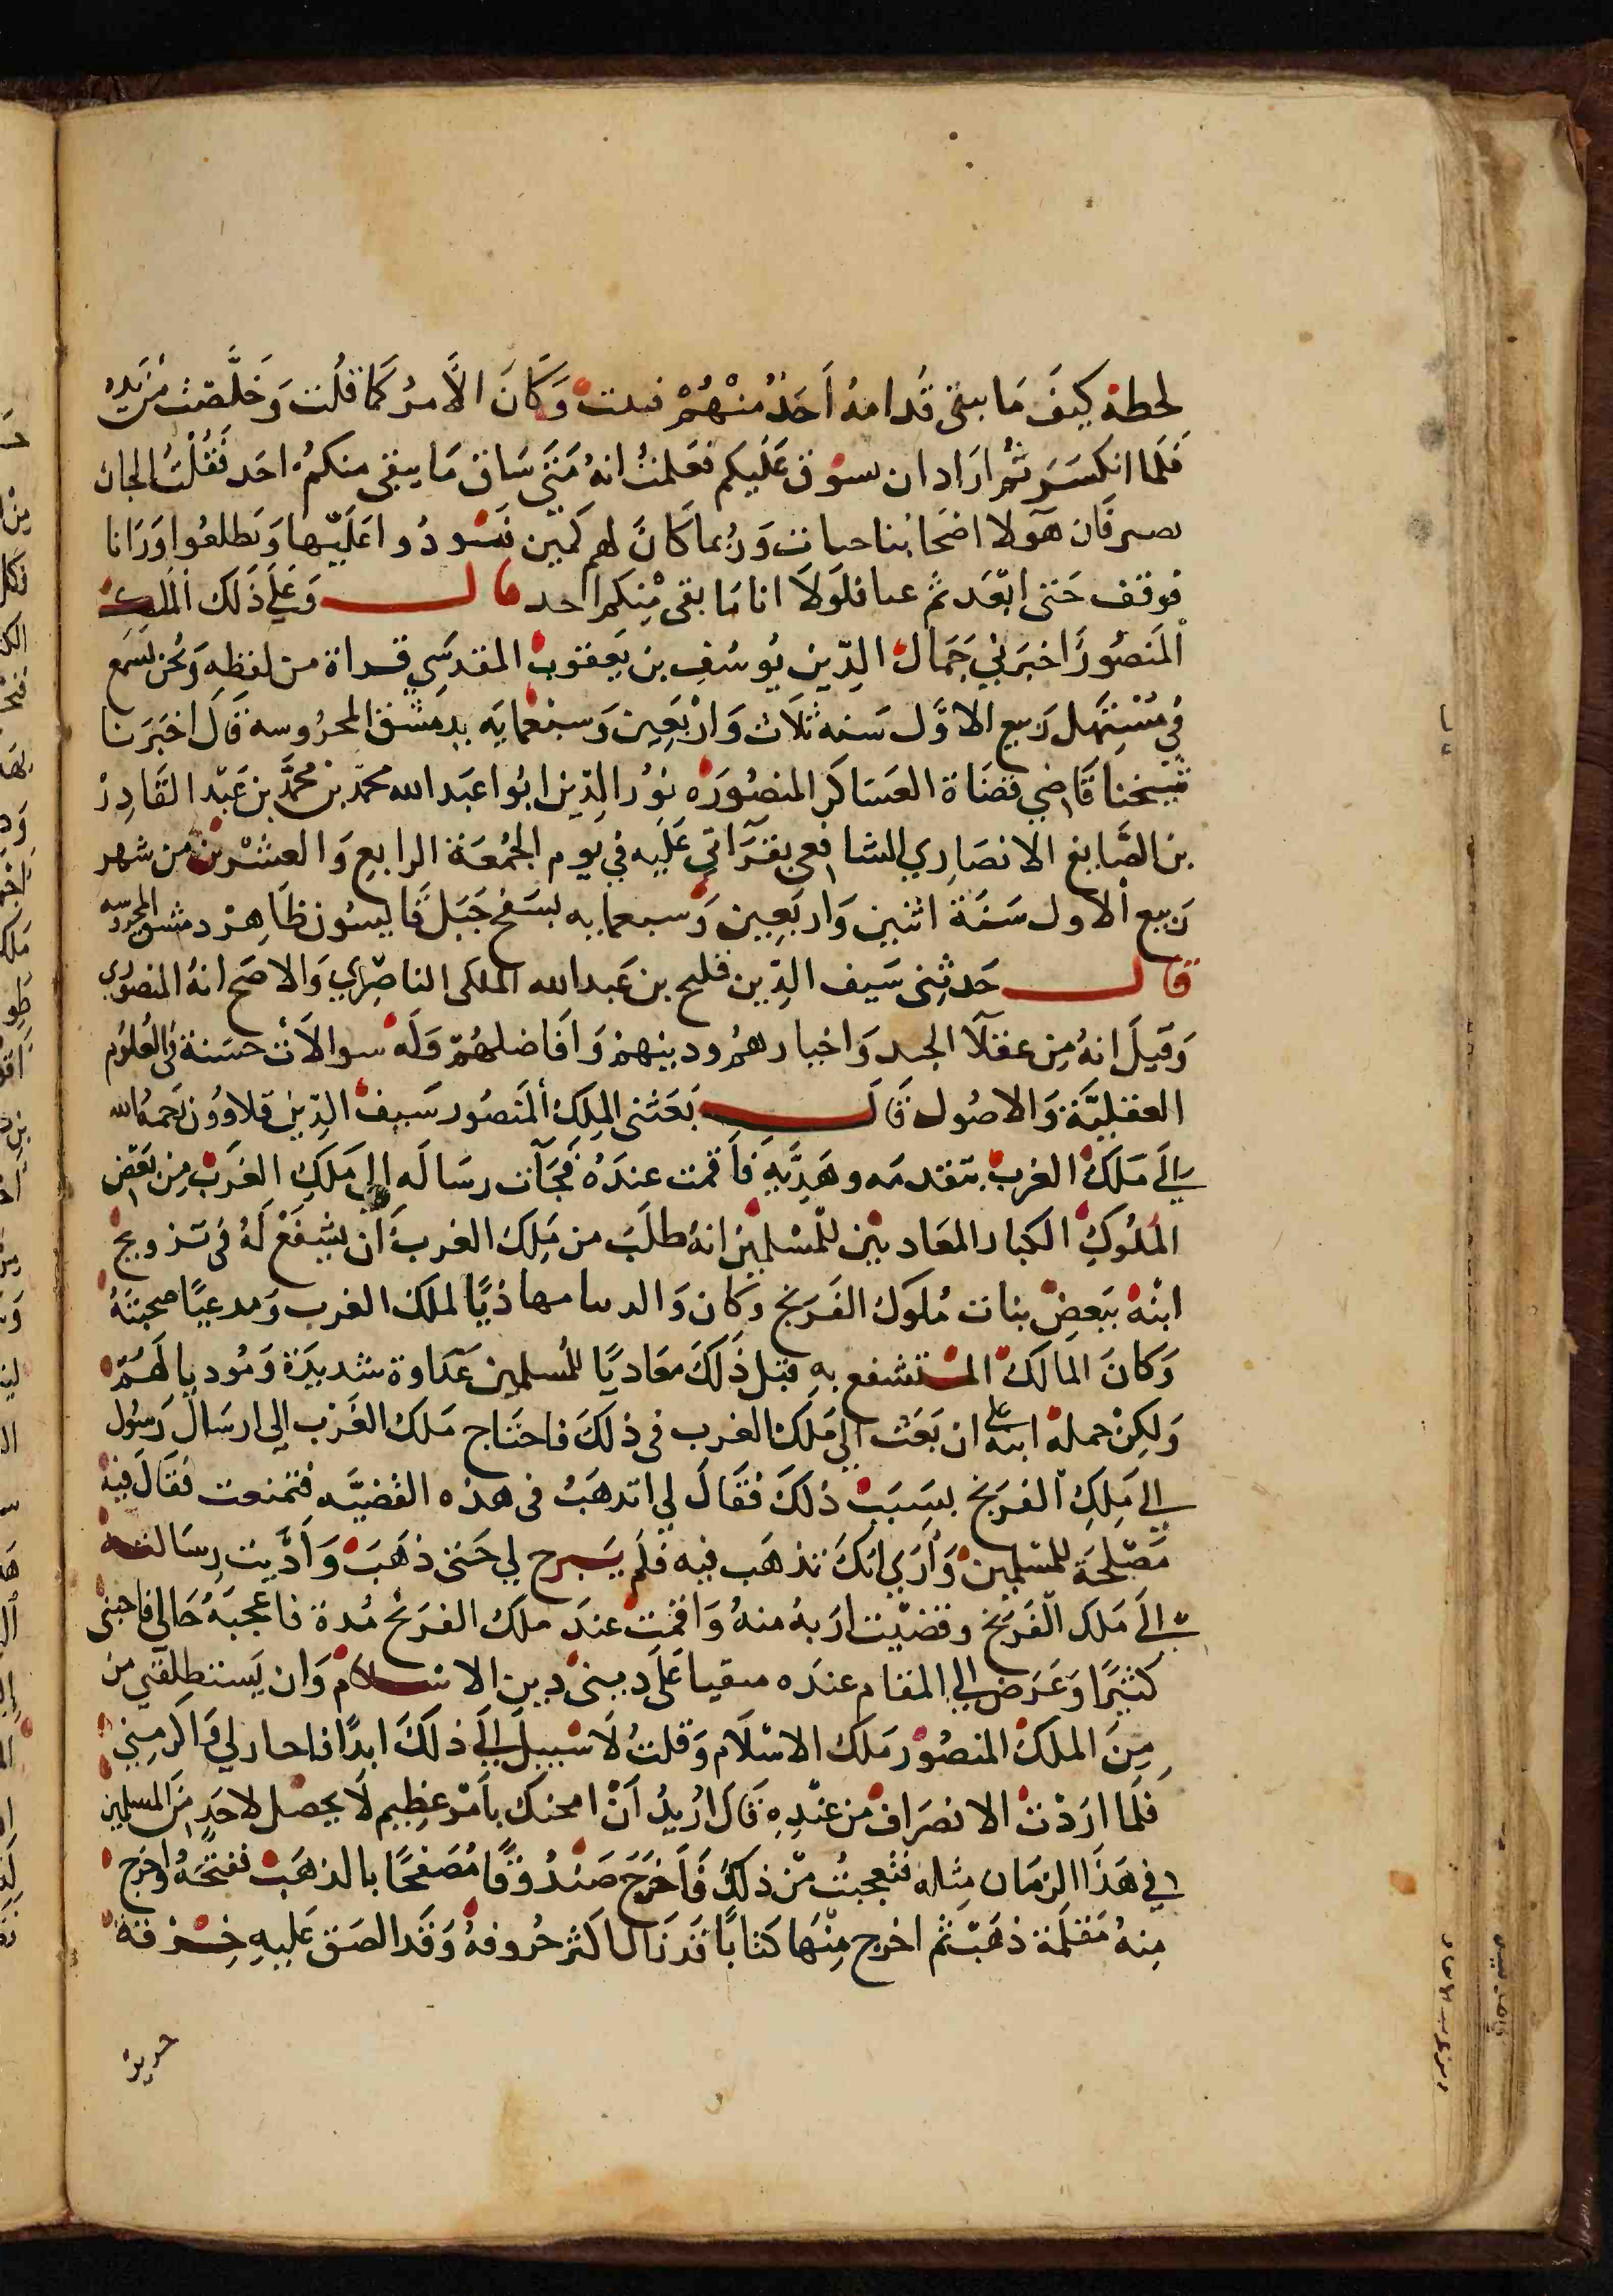 لحطة كيفَ مَا يبقى قُدامهُ اَحَدٌ مِنْهُمْ وَكَانَ الاَّمرُ كَمَا قلُت وَخَلَّصت مُن يَدِهُ
فَلَما انكسَرَ ثُم ارَادَ ان يسوُق عَلَيكم فعَلمتُ انهُ مَتَى سَاق مَا يبقى منكمُ احَد فَقُلتُ الجان
فَان هَولا اصَحَابُنا وَرُبما كَانَ لهم كَمين وَيطلعُوا وَرَانا
فوقف حَتى ابّعَد ثم عنا فلَولاَ انا مَا بقى مِنْكم احد قال وَعَلَي ذَلك المَلك
المَنصُور اخبَرَنيِ جَمَال الدِّين يُوسُفِ بن يَعقوُب المقدسِي قراة من لفظهِ وَنحنُ نَسمَع
فِي مُسْتَهل رَبيع الاوَّل سَنه ثلَاث وَارْبَعِين وَسبْعمايَه بدِمَشق المحرُوسه قَالَ اخبَرَنا
شيخنا قَاضِي قضَاة العَسَاكَر المنصُورَه نوُر الدِّين ابُوا عبَد الله محمّد بن محُمَّد بن عَبّد القَادِرْ
بن الصَّايغ الانصَارِي الشافعي بقرَآتي عَلَيه في يَوم الجُمُعَة الرابع وَالعشْرين من شهر
رَبيع الاول سَنَة اثنين وَاربَعِين وَسبعمايه بسَفح جَبَل قَاسيُون ظَاهِرْ دمشق المحروسه
قال حَدثنِى سَيف الدِّين قليح بن عَبد الله الملكى الناصِري وَالاصَح انهُ المنصُورى
وَقيلَ انهُ مِن عقلَا الجند وَاخبارهمُ ودينهمْ وَاَفَاضلهُمْ وَلَهُ سوالاَت حسَنة فى العُلوُم
العقليَّة وَالاصُول قَالَ بَعَثنى المِلكِ المَنصُور سَيف الدِّين قلاووُن رَحمهُ الله
إلَى مَلَك الغربْ بتَقدمَه وهَدِيَّهِ فاَقمت عندَهُ فجَآت رسَالَه إلى مَلَكِ الغَرَب مِن بَعَض
المُلوُكِ الكبار المعَاديْين للمُسْلمِين انهُ طلَبَ من مَلِك الغرب اَن يشفَعْ لَهُ فى تزويج
ابنْه ببَعضِ بنات مُلوُك الفَرنج وكان وَالد مهاذيًا لملك الغرب وَمدعيًا محبتَهُ
وَكَانَ المَالَكُ المستشفع بهِ قبَل ذَلَكَ معَاديًا للمُسلمين عَدَاوة شديدَة وَمُوديا لَهُمُ
وَلكِنْ حملهُ ابنُه علي ان بَعَث الى مَلَك الغرب فى ذلكَ فاحتَاج مَلَك الغَرْب إلى ارسَال رَسوُل
إلى مَلِكِ الفرَنج بسَبَبْ ذلكَ فَقَالَ لي اتدهَبُ فى هذه القضيَّه فتمنعت فقَالَ فيهْ
مَصّلحَة للمسْلمين وَأرَي انَكَ تذهَب فيه فلَم يَبرح لي حَتى ذهَبَت وَادَّيت رسَالته
إلَى مَلَك الفَرَنج وقضيّت ارَبهُ منهُ وَاقمتُ عندَ ملَك الفرَنج مُدة فاعجبَهُ حَالى فاحبنى
كثيرًا وَعَرَض إلي المقام عندَه مبقيا عَلَى دينى دين الاسلَام وَان يَستطلقني من
مِنَ الملَك المنصُور مَلَك الاسْلَام وَقلتُ لَا سبيل إلىَ ذلَكَ ابدًا فاجازلي وَاكرَمنِي
فلَما ارَدْت الانصَراف من عنْدِهِ قَالَ ارُيدُ اَن امنحك بأمْر عظِيم لَا يحصَل لاحَدٍ مَنَ المسلمين
فى هَذَا الزمَان مِثله فتعجبتُ من ذلَك فَاَخرَج صَنْدُوقًا مُصَفحًا بالذهَبْ ففتحَهُ واخرَج
مِنهُ مقلمَة ذهَبْ ثم اخرج مِنْهَا كتابًا قد زَال اكثر حُروفهُ وَقَد الصَق عَليهِ خِرْقة
حرير